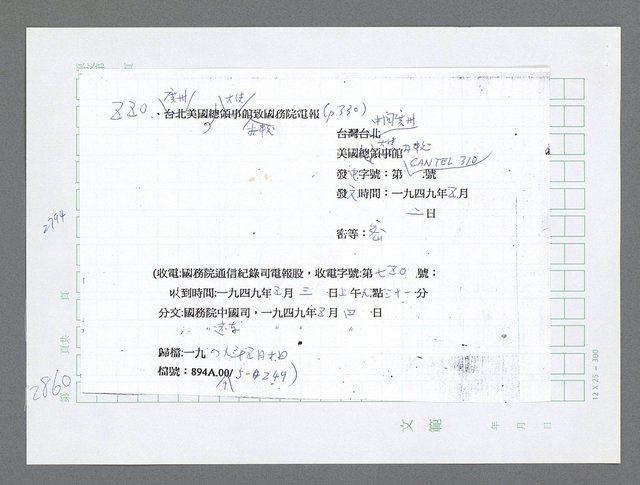 廣州 大使
330. 台北美國總領事館致國務院電報 (p.330)
中国廣州
台灣台北
大使
美國總領事館
CANTEL 310
發電字號：第 號
發文時間：一九四九年五月
二日
密等：密
(收電:國務院通信紀錄司電報股，收電字號:第七五0號；
收到時間:一九四九年五月三日上午八點三十一分
分文:國務院中國司，一九四九年五月四日
" 遠東 " " "
歸檔:一九
檔號：894A.00/5-249)
2794
2860
第 頁共 頁
文範
年 月 日
12 X 25 = 300